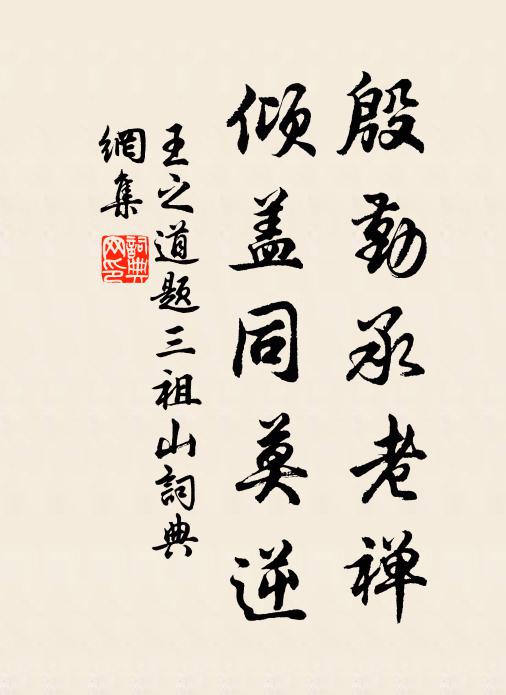 殷勤承老禅
倾盖同莫逆
王之道题三祖山詞典
網集
詞典
网印